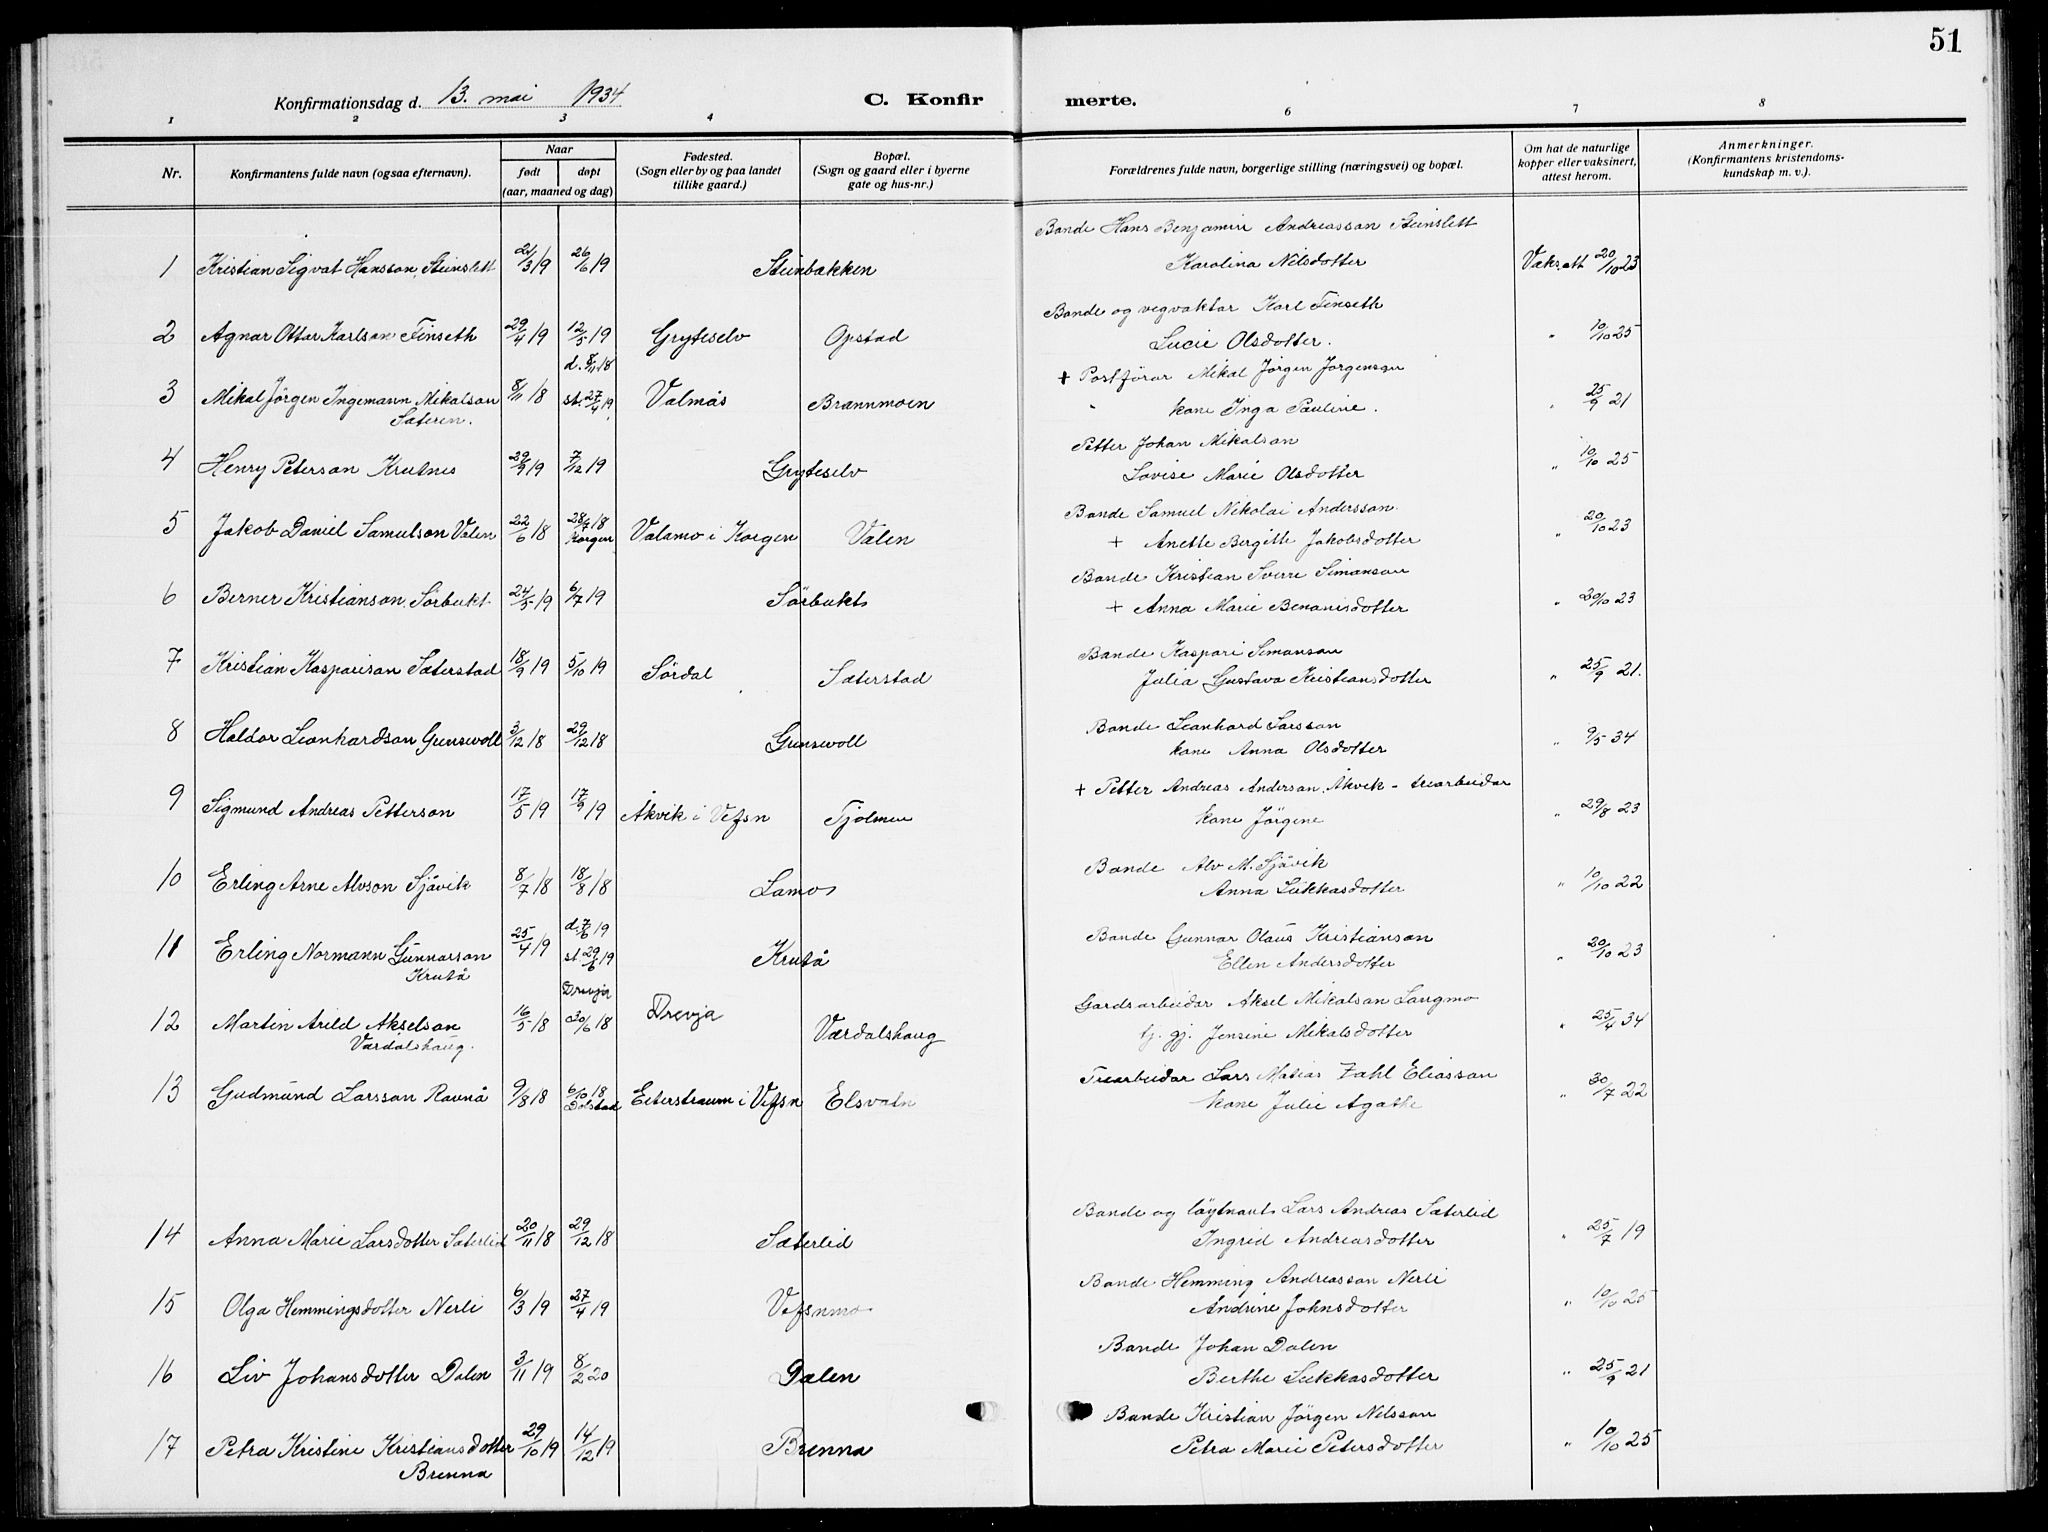 51
Konfirmationsdag d. 13. mai 1934 C. Konfirmerte.
1 2 3 4 6 7 8
Nr. Konfirmantens fulde navn (ogsaa efternavn). Naar født døpt (aar, maaned og dag) Fødested. (Sogn eller by og paa landet tillike gaard.) Bopæl. (Sogn og gaard eller i byerne gate og hus-nr.) Forældrenes fulde navn, borgerlige stilling (næringsvei) og bopæl. Om hat de naturlige kopper eller vaksinert, attest herom. Anmerkninger. (Konfirmantens kristendoms-kundskap m. v.).
Bonde Hans Benjamin Andreasson Steinslett
1 Kristian Sigvat Hansson Steinslett 21/3 19 26/6 19 Steinbakken Karolina Nilsdotter Vaks.att 20/10 23
Bonde og vegvaktar Karl Finseth
2 Agnar Ottar Karlson Finseth 29/4 19 12/5 19 Gryteselv Opstad Lucie Olsdotter. " 10/10 25
d. 8/11 18 + Postförar Mikal Jörgen Jörgenson
3 Mikal Jörgen Ingemann Mikalson 8/11 18 st. 27/4 19 Valmås Brannmoen " kone Inga Pauline. " 25/9 21
Sæteren.
Petter Johan Mikalson
4 Henry Peterson Krutnes 29/9 19 7/12 19 Gryteselv Lovise Marie Olsdotter " 10/10 25
Bonde Samuel Nikolai Andersson
5 Jakob Daniel Samulson Valen 22/6 18 28/7 18 Korgen Valamo i Korgen Valen + Anette Bergitte Jakobsdotter " 20/10 23
Bonde Kristian Sverre Simonson
6 Berner Kristianson Sörbukt 24/5 19 6/7 19 Sörbukt + Anna Marie Benonisdotter " 20/10 23
Bonde Kaspari Simonson
7 Kristian Kasparison Sæterstad 18/9 19 5/10 19 Sördal Sæterstad Julia Gustava Kristiansdotter " 25/9 21.
Bonde Leonhard Larsson
8 Haldor Leonhardson Grensevoll 3/12 18 29/12 18 Grensevoll kone Anna Olsdotter " 9/5 34
+ Petter Andreas Anderson Åkvik - trearbeidar
9 Sigmund Andreas Petterson 17/5 19 17/9 19 Åkvik i Vefsn Tjolmen kone Jörgene " 29/8 23
Bonde Alv M. Sjåvik
10 Erling Arne Alvson Sjåvik 8/7 18 18/8 18 Lamo Anna Lukkasdotter " 10/10 22
d. 7/6 19 Bonde Gunnar Olaus Kristianson
11 Erling Normann Gunnarson 25/4 19 st 29/6 19 Krutå Ellen Andersdotter " 20/10 23
Krutå
Drevja Gardsarbeidar Aksel Mikalson Langmo
12 Martin Arild Akselson 16/5 18 30/6 18 Drevja Værdalshaug tj. gj. Jensine Mikalsdotter " 25/4 34
Værdalshaug.
Trearbeidar Lars Matias Zahl Eliasson
13 Gudmund Larsson Ravnå 9/8 18 6/10 18 Dolstad Eiterstraum i Vefsn Elsvatn kone Julie Agathe " 30/7 22
Bonde og löytnant Lars Andreas Sæterlid
14 Anna Marie Larsdotter Sæterlid 20/11 18 29/12 18 Sæterlid Ingrid Andreasdotter " 25/7 19
Bonde Hemming Andreasson Nerli
15 Olga Hemmingsdotter Nerli 6/3 19 27/4 19 Vefsnmo Andrine Johnsdotter " 10/10 25
Bonde Johan Dalen
16 Liv Johansdotter Dalen 3/11 19 8/2 20 Dalen Berthe Lukkasdotter " 25/9 21
Bonde Kristian Jörgen Nilsson
17 Petra Kristine Kristiansdotter 29/10 19 14/12 19 Brenna Petra Marie Petersdotter " 10/10 25
Brenna